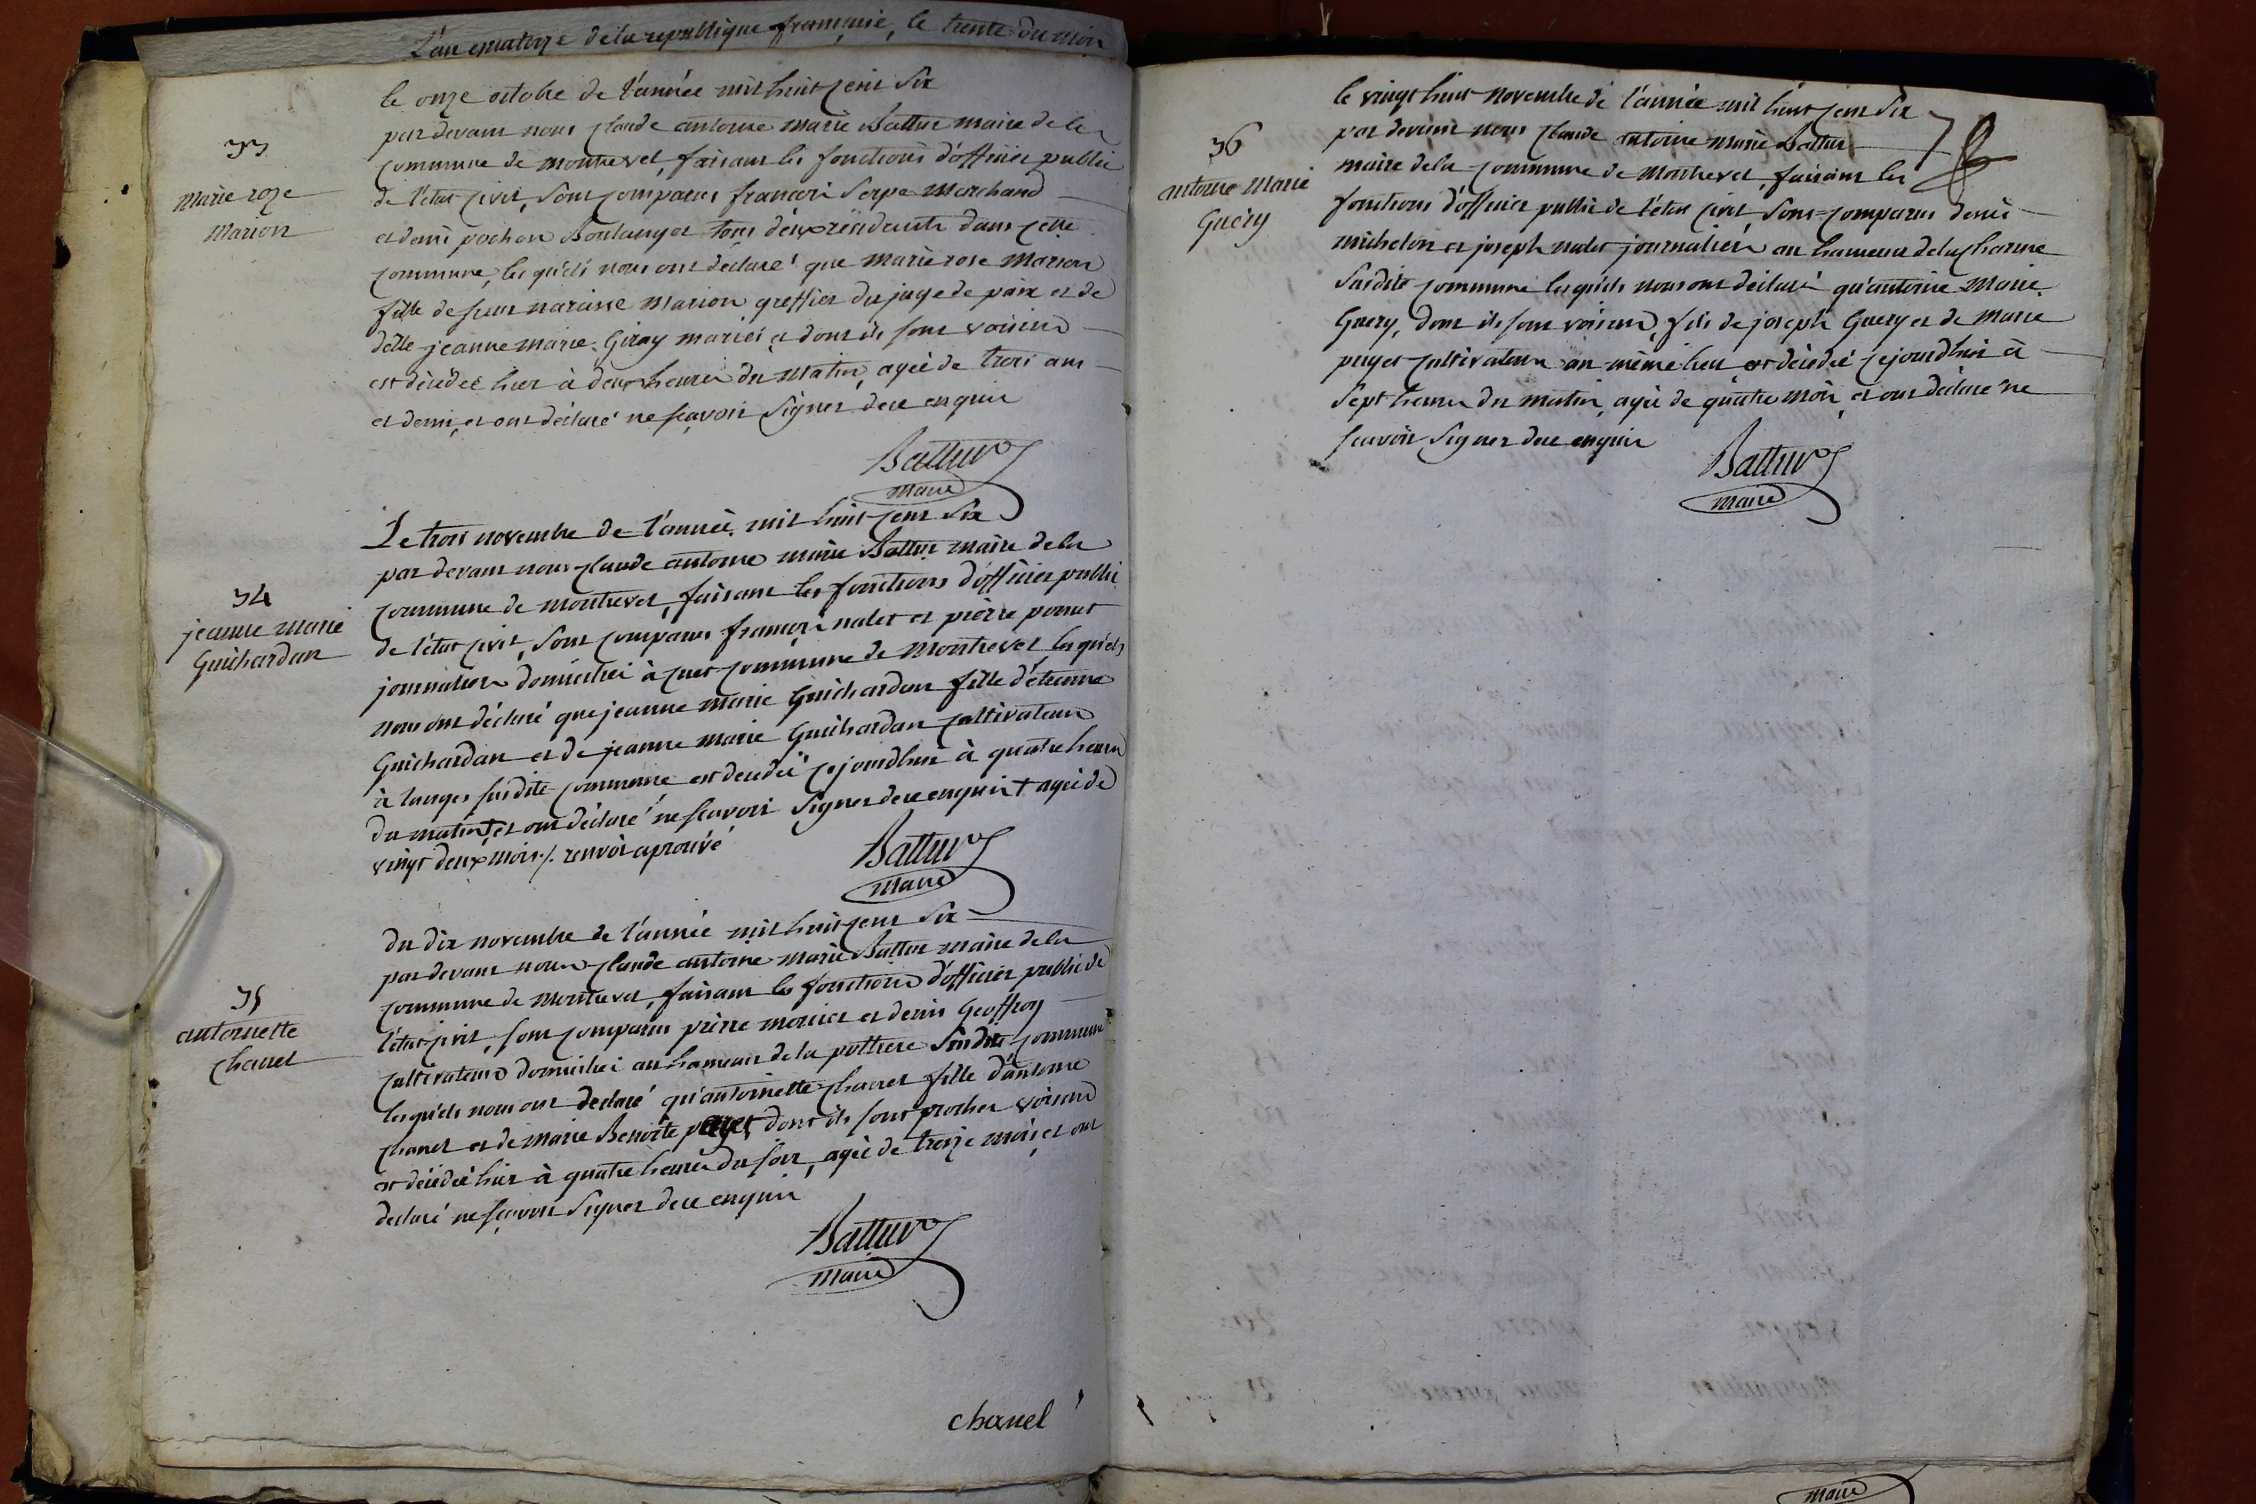 L'an quatorze de la republique française, le trente du mois
le onze octobre de l'année mil huit cent six
par devant nous claude antoine marie Battur maire de la
commune de montrevel, faisant les fonctions d'officier public
de l'état civil, sont comparus françois Serpe Marchand
et denis pochon Boulanger tous deux résidents dans cette
commune, lesquels nous ont déclaré que marie rose Marion
fille de sieur narcisse Marion greffier du juge de paix et de
delle jeanne marie Giray mariés et dont ils sont voisins
est décédée hier à deux heures du matin, agée de trois ans
et demi, et ont déclaré ne sçavoir signer de ce enquis
33
Marie roze
Marion
Battur
Maire
Le trois novembre de l'année mil huit cent six
par devant nous claude antoine marie Battur maire de la
commune de montrevel, faisant les fonctions d'officier public
de l'état civil, sont comparus françois nalet et pierre ponset
journaliers domiciliés à cuet commune de Montrevel lesquels
nous ont déclaré que jeanne marie Guichardan fille d'étienne
Guichardan et de jeanne marie Guichardan cultivateurs
à langes susdite commune est decedée cejourdhui à quatre heures
du matin + et ont déclaré ne sçavoir signer de ce enquis + agée de
vingt deux mois ./. renvoi aprouvé
34
jeanne marie
Guichardan
Battur
Maire
du dix novembre de l'année mil huit cent six
par devant nous claude antoine marie Battur maire de la
commune de Montrevel, faisant les fonctions d'officier public de
l'état civil, sont comparus pierre mercier et denis Geoffroy
cultivateurs domiciliés au hameau de la pothiere susdite commune
lesquels nous ont declaré qu'antoinette chanel fille d'antoine
chanel et de Marie Benoite dont ils sont proches voisins
est décédée hier à quatre heures du soir, agée de treize mois, et ont
declaré ne sçavoir signer de ce enquis
35
antoinette
chanel
Battur
Maire
chanel
le vingt huit novembre de l'année mil huit cent six
par devant nous claude antoine marie Battur
maire de la commune de Montrevel, faisant les
fonctions d'officier public de l'état civil, sont comparus denis
michelon et joseph nalet journaliers au hameau de la charme
susdite commune lesquels nous ont déclaré qu'antoine Marie
Guery, dont ils sont voisins, fils de joseph Guery et de marie
puget cultivateurs au même lieu est décédé cejourdhui à
sept heures du matin, agé de quatre mois, et ont déclaré ne
sçavoir signer de ce enquis
36
antoine Marie
Guéry
Battur
Maire
Maire